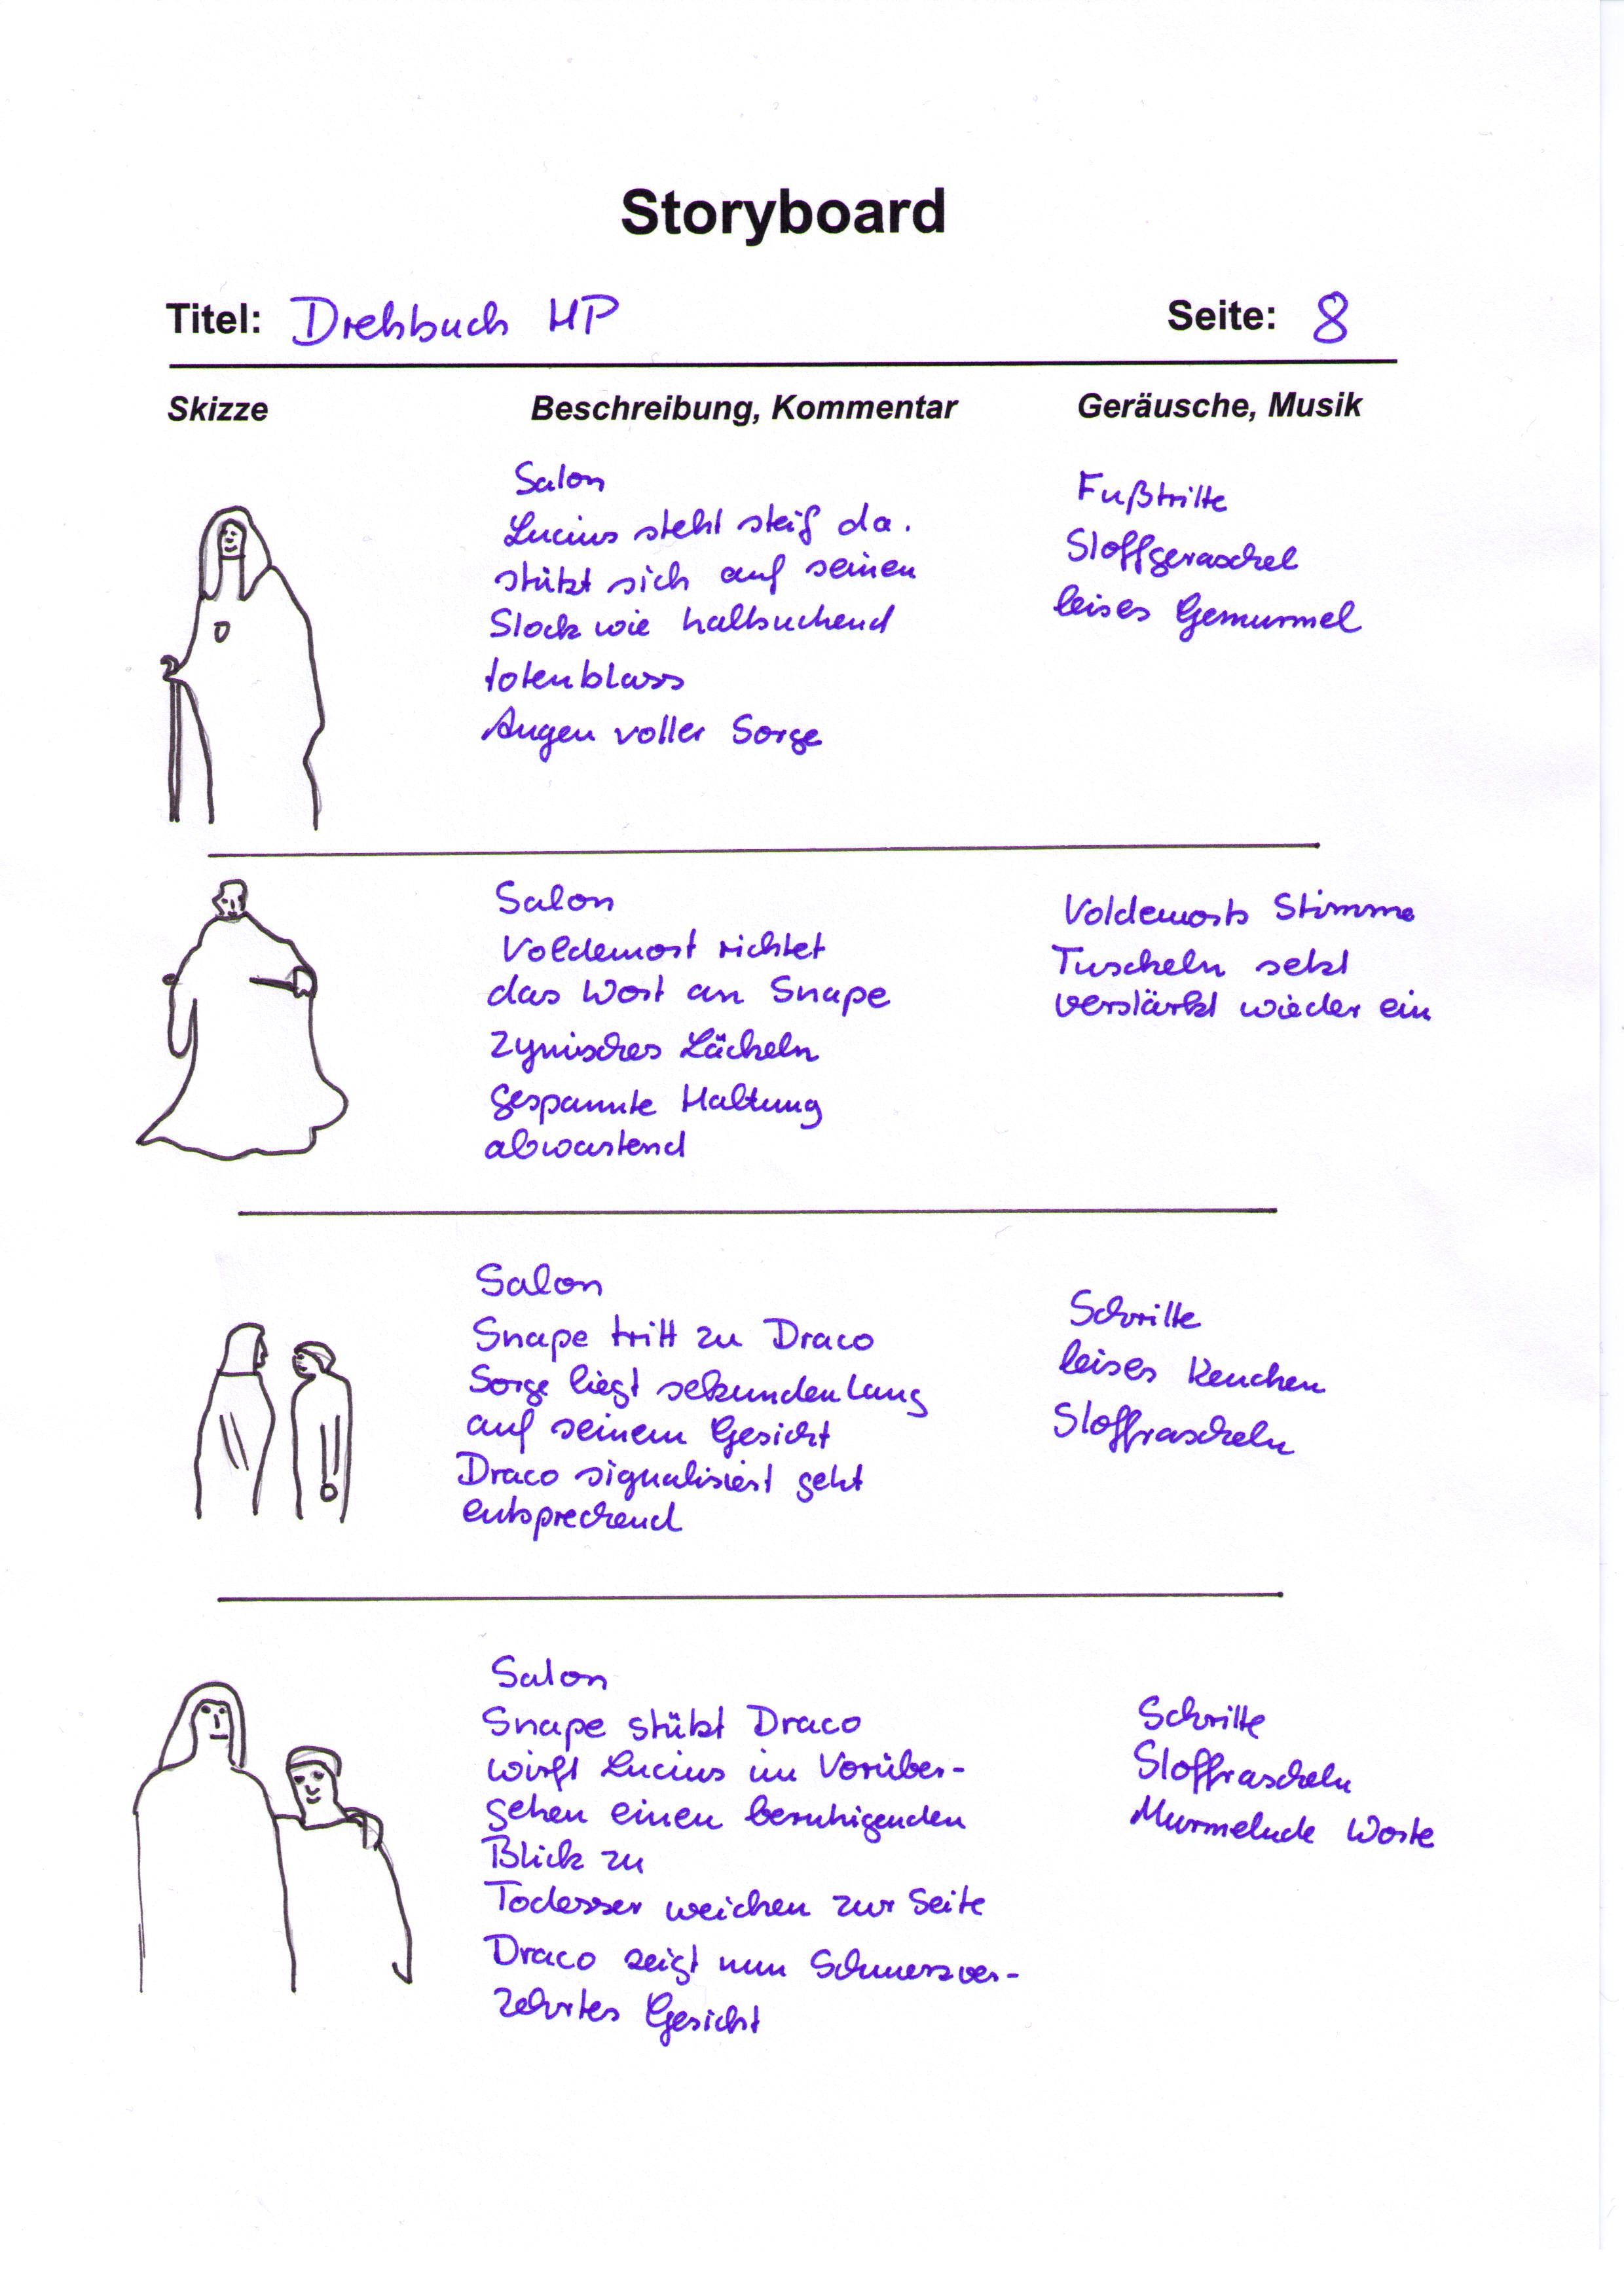 Storyboard
Titel: Drehbuch HP Seite: 8
Skizze Beschreibung, Kommentar Geräusche, Musik
Salon
Lucius steht steif da.
stützt sich auf seinen
Stock wie haltsuchend
totenblass
Augen voller Sorge
Fußtritte
Stoffgeraschel
leises Gemurmel
Salon
Voldemort richtet
das Wort an Snape
Zynisches Lächeln
gespannte Haltung
abwartend
Voldemorts Stimme
Tuscheln setzt
verstärkt wieder ein
Salon
Snape tritt zu Draco
Sorge liegt sekundenlang
auf seinem Gesicht
Draco signalisiert geht
entsprechend
Schritte
leises Keuchen
Stoffrascheln
Salon
Snape stützt Draco
wirft Lucius im Vorüber-
gehen einen beruhigenden
Blick zu
Todesser weichen zur Seite
Draco zeigt nun Schmerzver-
zehrtes Gesicht
Schritte
Stoffrascheln
Murmelnde Worte